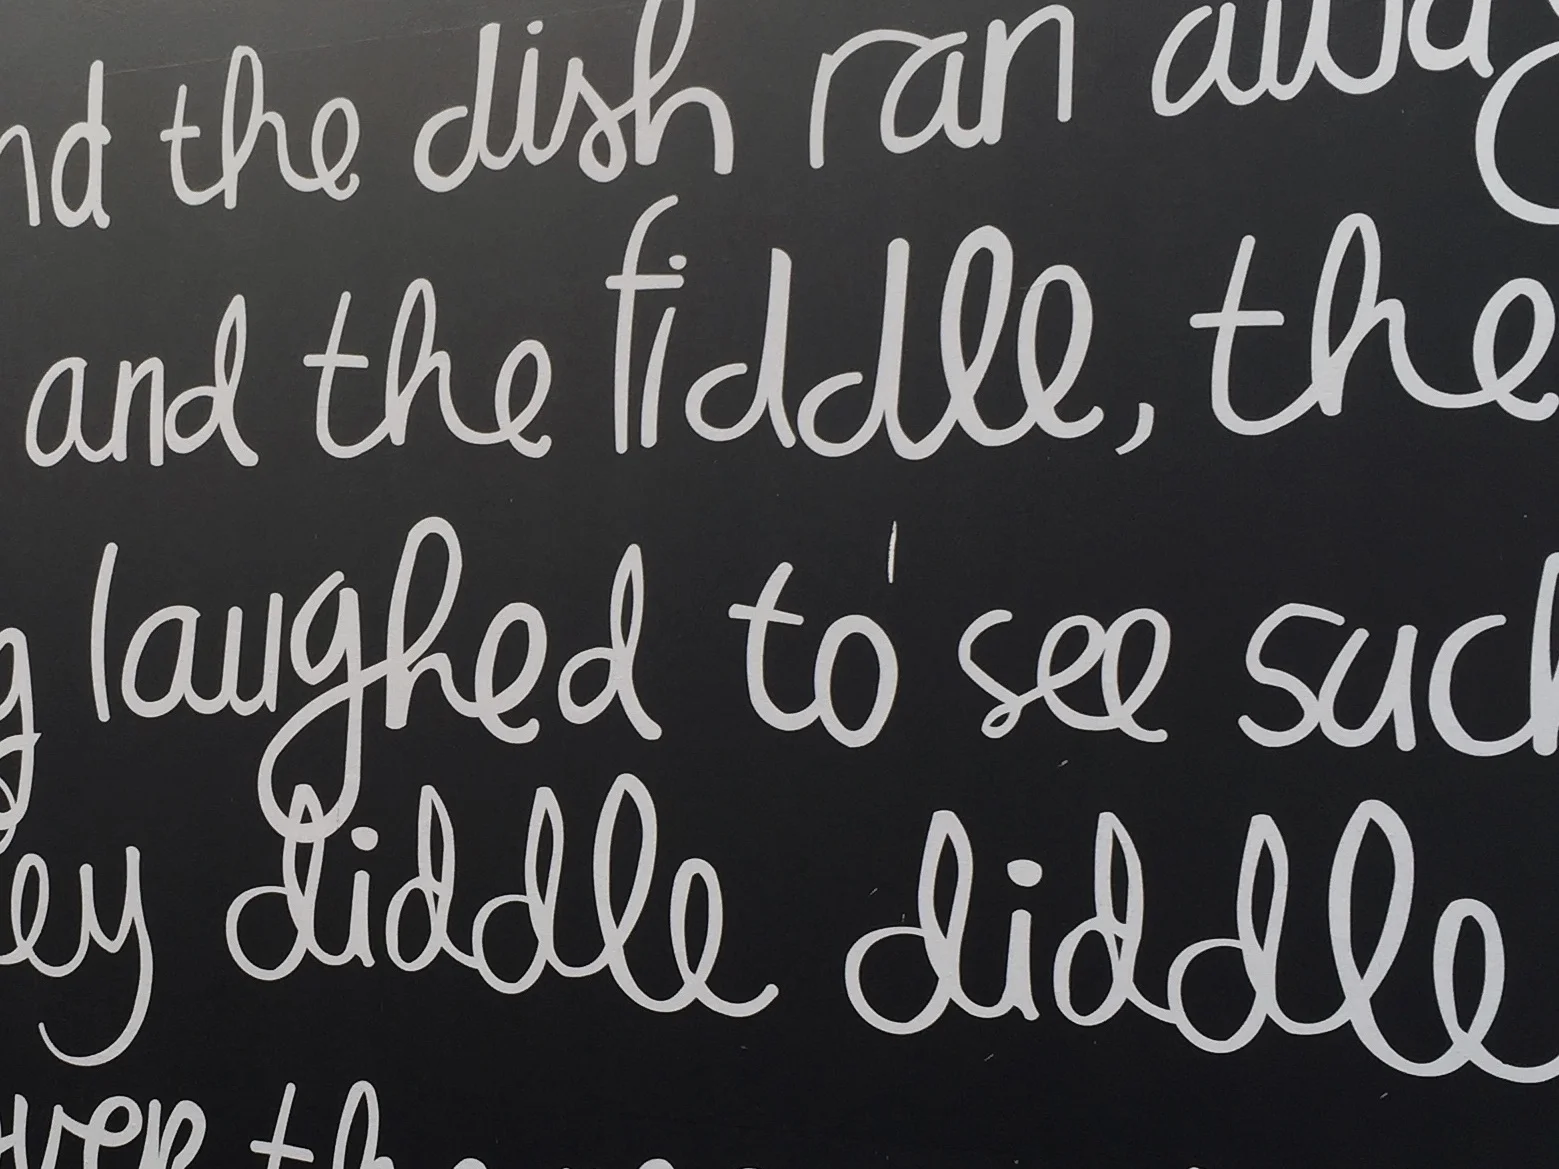 nd the dish ran away
and the fiddle, the
g laughed to see such
ey diddle diddle
over the